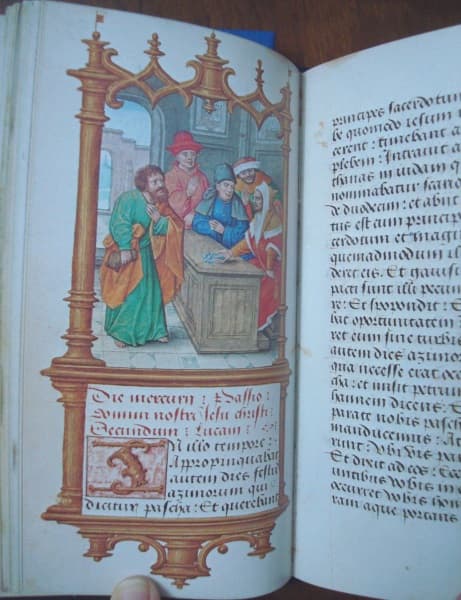 Die mercurij : Passio
Domini nostri Jesu christi
Secundum : Lucam :
In illo tempore :
Appropinquabat
autem dies festus
azimorum qui
dicitur pascha : Et querebant
principes sacerdotum
be quomodo iesum
cerent : timebant
plebem : Intravit
thanas in iudam
nominabatur scario
de duodecim : et abiit
tus est cum princip
cerdotum et magis
quemadmodum
deret eis. Et gavisi
pacti sunt ille pecun
re : Et spopondit :
bat oportunitatem
ret eum sine turbis
autem dies azimor
qua necesse erat occi
cha : et misit petrum
hannem dicens :
parate nobis pascha
manducemus : At
xerunt : Ubi vis par
Et dixit ad eos : Ecc
untibus vobis in
occurret vobis homo
ram aque portans